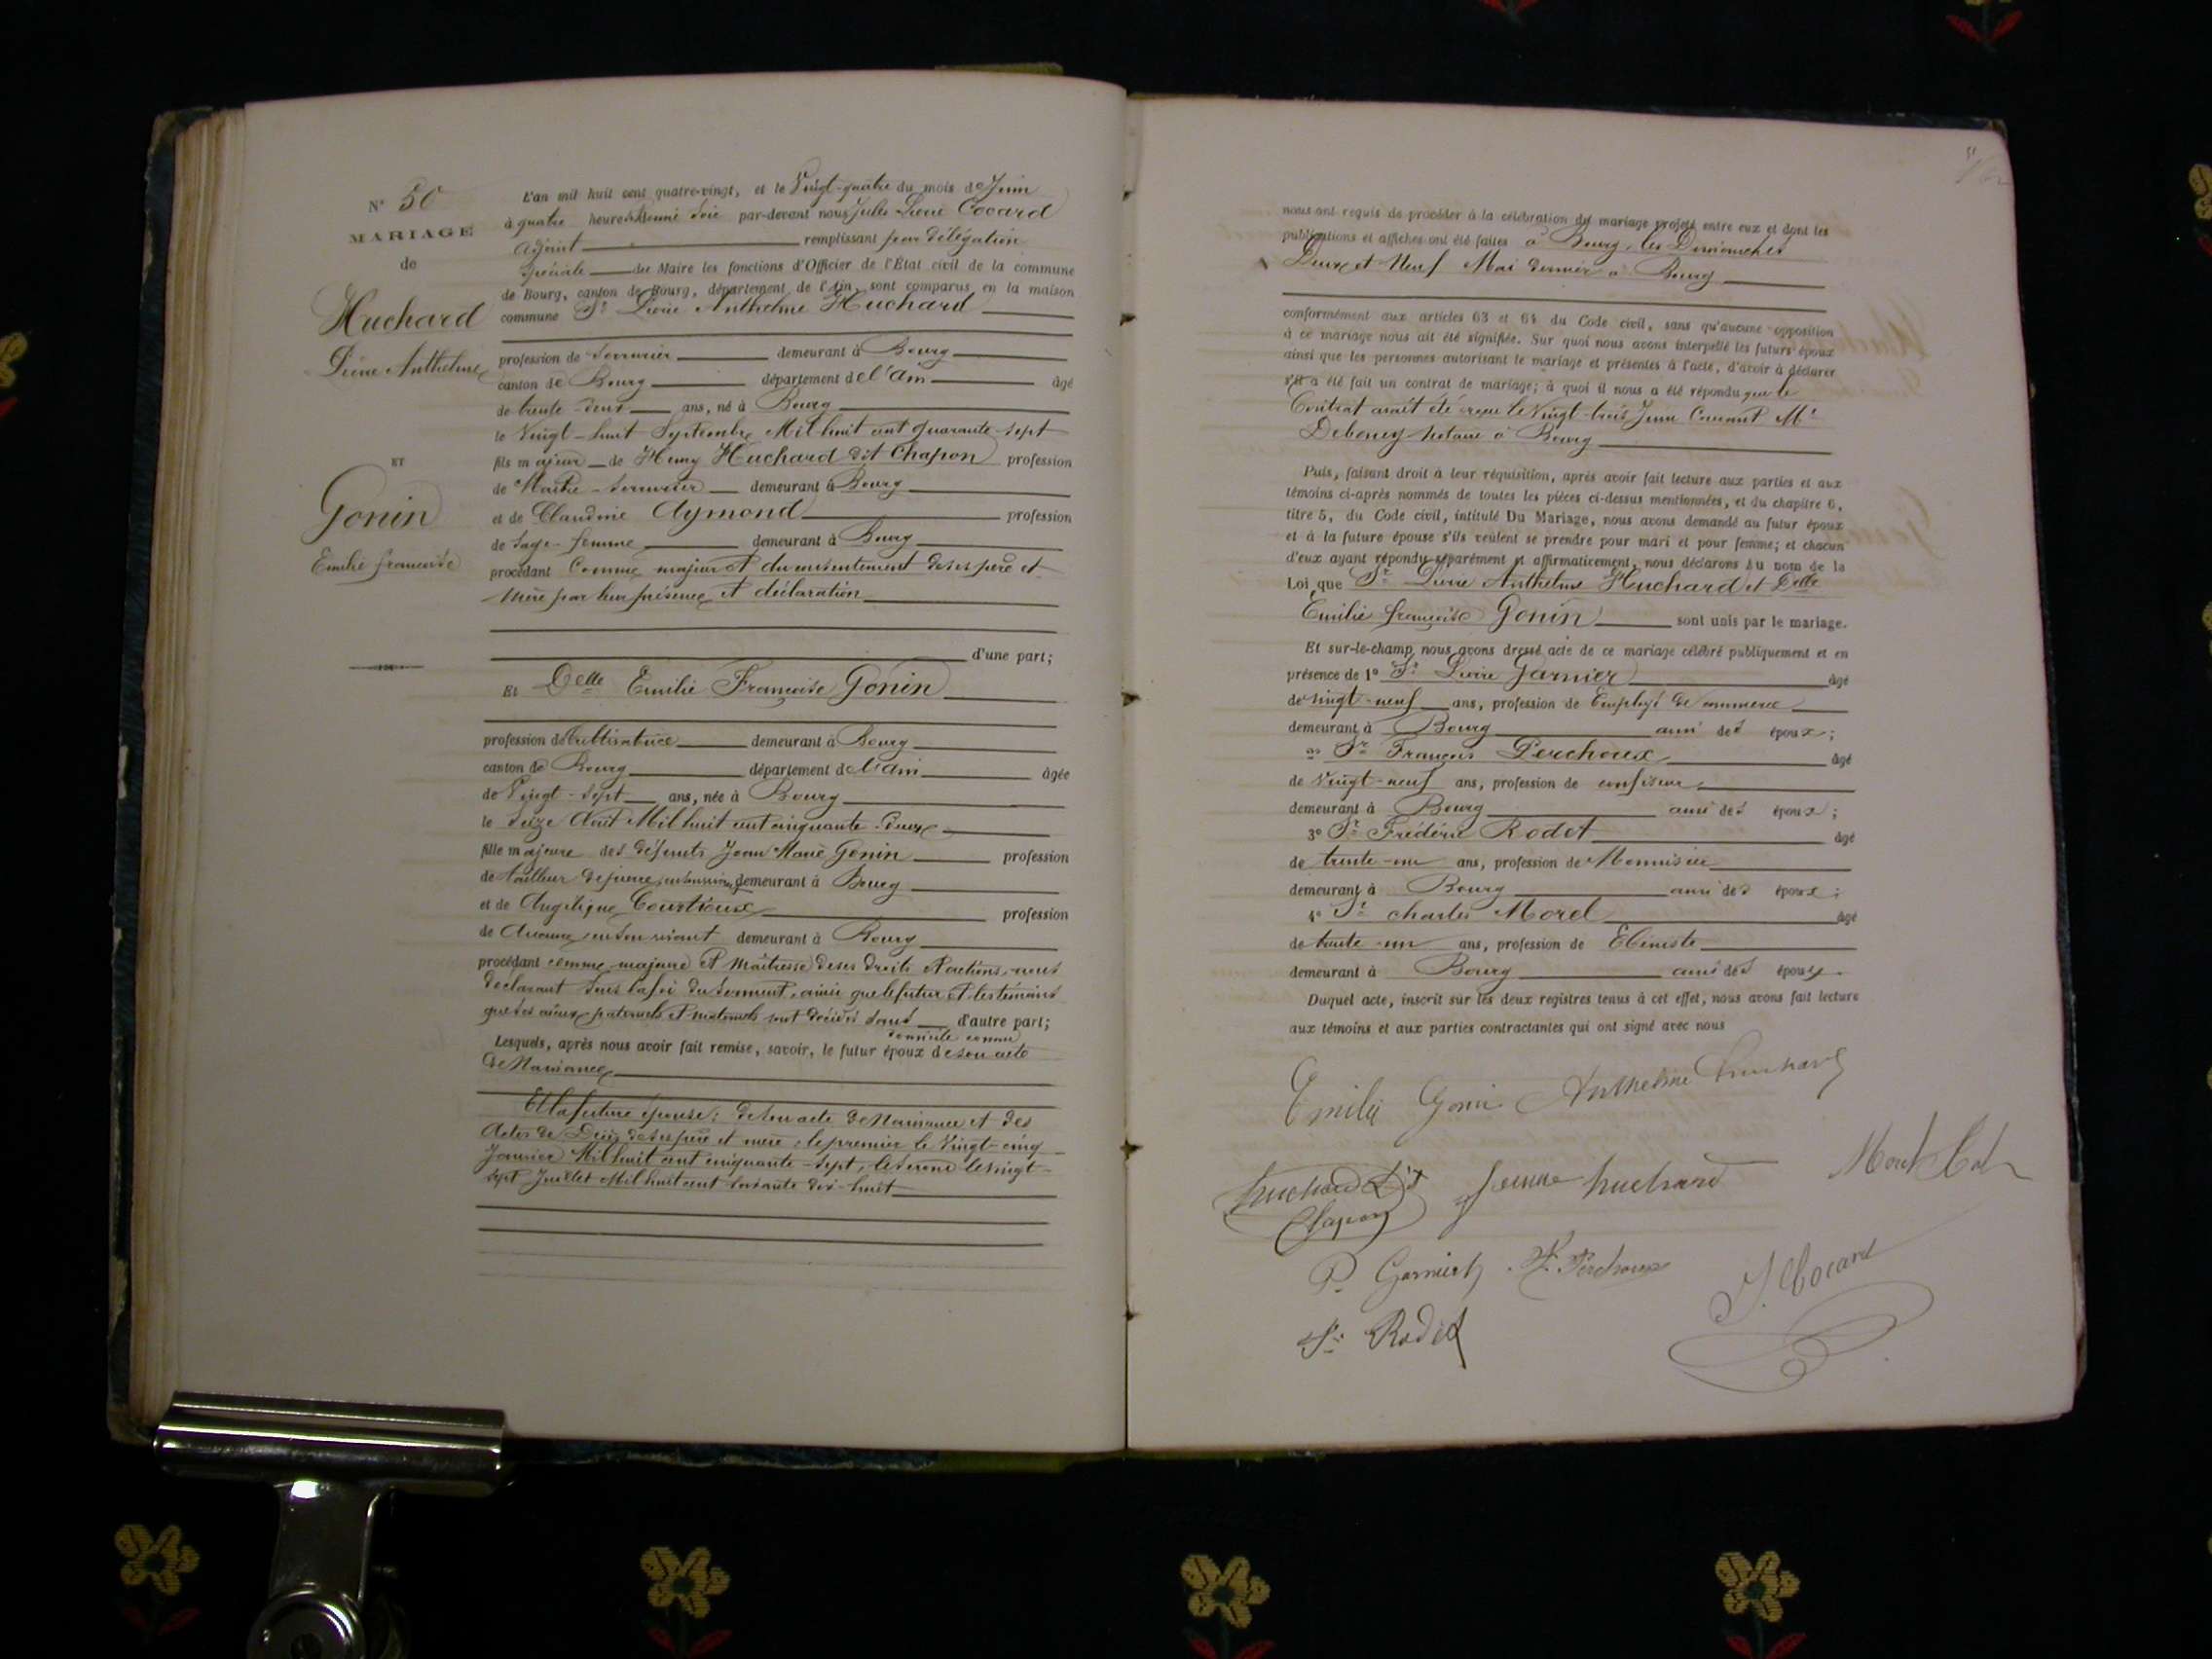 N° 50
MARIAGE
de
Huchard
Pierre Anthelme
ET
Gonin
Emilie françoise
L'an mil huit cent quatre-vingt, et le Vingt-quatre du mois de Juin
à quatre heures & demie Soir par-devant nous Jules Pierre Cocard
Adjoint remplissant par délégation
Spéciale du Maire les fonctions d'Officier de l'État civil de la commune
de Bourg, canton de Bourg, département de l'Ain, sont comparus en la maison
commune Sr Pierre Anthelme Huchard
profession de Serrurier demeurant à Bourg
canton de Bourg département de l'Ain âgé
de trente-deux ans, né à Bourg
le Vingt-huit Septembre Mil huit cent quarante-sept
fils majeur de Henry Huchard dit Chapon profession
de Maître-Serrurier demeurant à Bourg
et de Claudine Aymond profession
de Sage-femme demeurant à Bourg
procédant Comme majeur et du consentement de ses père et
Mère par leur présence et déclaration
d'une part;
Et Delle Emilie Françoise Gonin
profession de demeurant à Bourg
canton de Bourg département de l'Ain âgée
de Vingt-Sept ans, née à Bourg
le Seize Août Mil huit cent cinquante-Deux
fille majeure des défunts Jean Marie Gonin profession
de tailleur de pierre, en son vivant demeurant à Bourg
et de Angélique Courtioux profession
de en son vivant demeurant à Bourg
procédant comme majeure et Maîtresse de ses droits et actions, nous
déclarant sous la foi du Serment, ainsi que le futur et les témoins
que ses aïeux paternels et maternels sont décédés sans d'autre part;
domicile connu
Lesquels, après nous avoir fait remise, savoir, le futur époux de son acte
de Naissance
Et la future épouse: de son acte de Naissance et des
Actes de Décès de ses père et mère, le premier le Vingt-cinq
Janvier Mil huit cent cinquante-Sept, le Second le Vingt-
Sept Juillet Mil huit cent soixante dix-huit
nous ont requis de procéder à la célébration du mariage projeté entre eux et dont les
publications et affiches ont été faites à Bourg, les Dimanches
Deux et Neuf Mai dernier à Bourg
conformément aux articles 63 et 64 du Code civil, sans qu'aucune opposition
à ce mariage nous ait été signifiée. Sur quoi nous avons interpellé les futurs époux
ainsi que les personnes autorisant le mariage et présentes à l'acte, d'avoir à déclarer
s'il a été fait un contrat de mariage; à quoi il nous a été répondu que le
Contrat avait été reçu le Vingt-trois Juin Courant Me
Deboney Notaire à Bourg
Puis, faisant droit à leur réquisition, après avoir fait lecture aux parties et aux
témoins ci-après nommés de toutes les pièces ci-dessus mentionnées, et du chapitre 6,
titre 5, du Code civil, intitulé Du Mariage, nous avons demandé au futur époux
et à la future épouse s'ils veulent se prendre pour mari et pour femme; et chacun
d'eux ayant répondu séparément et affirmativement, nous déclarons au nom de la
Loi, que Sr Pierre Anthelme Huchard et Delle
Emilie françoise Gonin sont unis par le mariage.
Et sur-le-champ nous avons dressé acte de ce mariage célébré publiquement et en
présence de 1° Sr Pierre Garnier âgé
de vingt-neuf ans, profession de Employé de commerce
demeurant à Bourg ami des époux;
2° Sr François Perchoux âgé
de Vingt-neuf ans, profession de confiseur
demeurant à Bourg ami des époux;
3° Sr Frédéric Rodet âgé
de trente-un ans, profession de Menuisier
demeurant à Bourg ami des époux;
4° Sr charles Morel âgé
de trente-un ans, profession de Ebéniste
demeurant à Bourg ami des époux.
Duquel acte, inscrit sur les deux registres tenus à cet effet, nous avons fait lecture
aux témoins et aux parties contractantes qui ont signé avec nous
Emilie Gonin Anthelme huchard
huchard dit
Chapon
femme huchard
P. Garnier F. Perchoux
J. Cocard
Fc Rodet